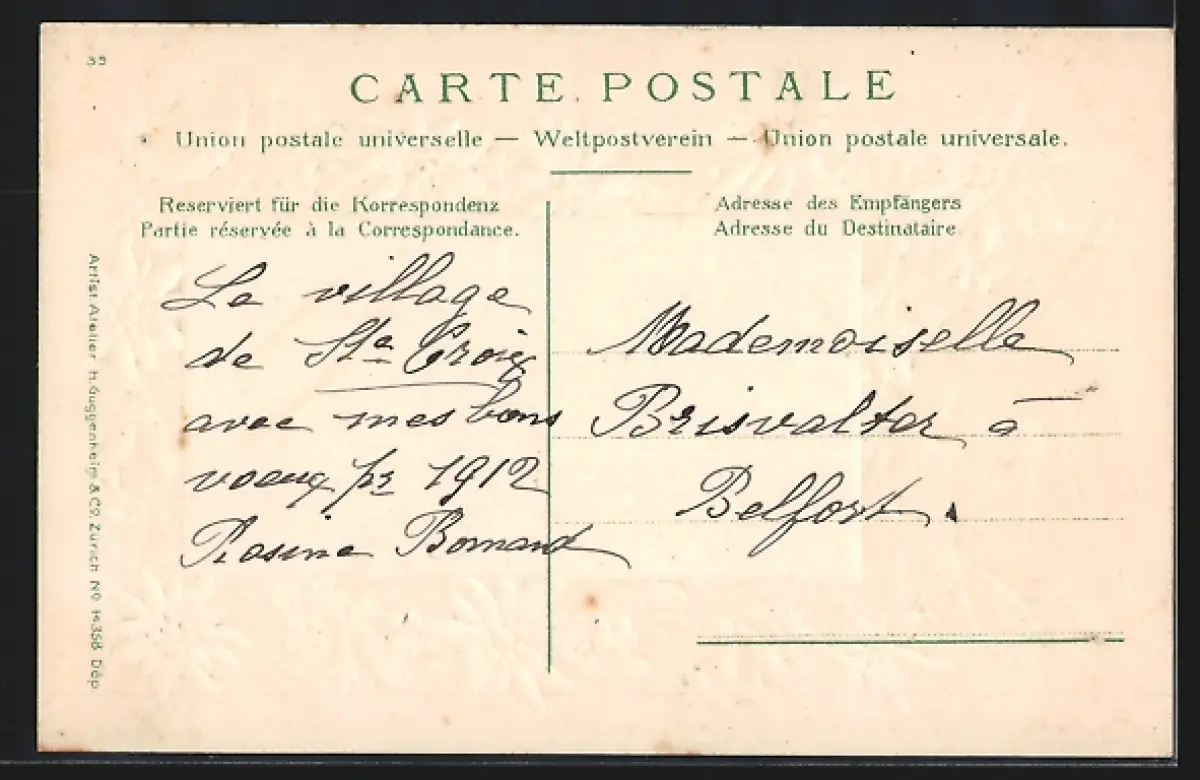 35
CARTE POSTALE
Union postale universelle — Weltpostverein — Union postale universale.
Reserviert für die Korrespondenz
Partie réservée à la Correspondance.
Adresse des Empfängers
Adresse du Destinataire
Le village
de Ste Croix
avec mes bons
voeux pr 1912
Rosine Bornand
Mademoiselle
Brisvalter à
Belfort.
Artist. Atelier H. Guggenheim & Co. Zürich No. 14358 Dép